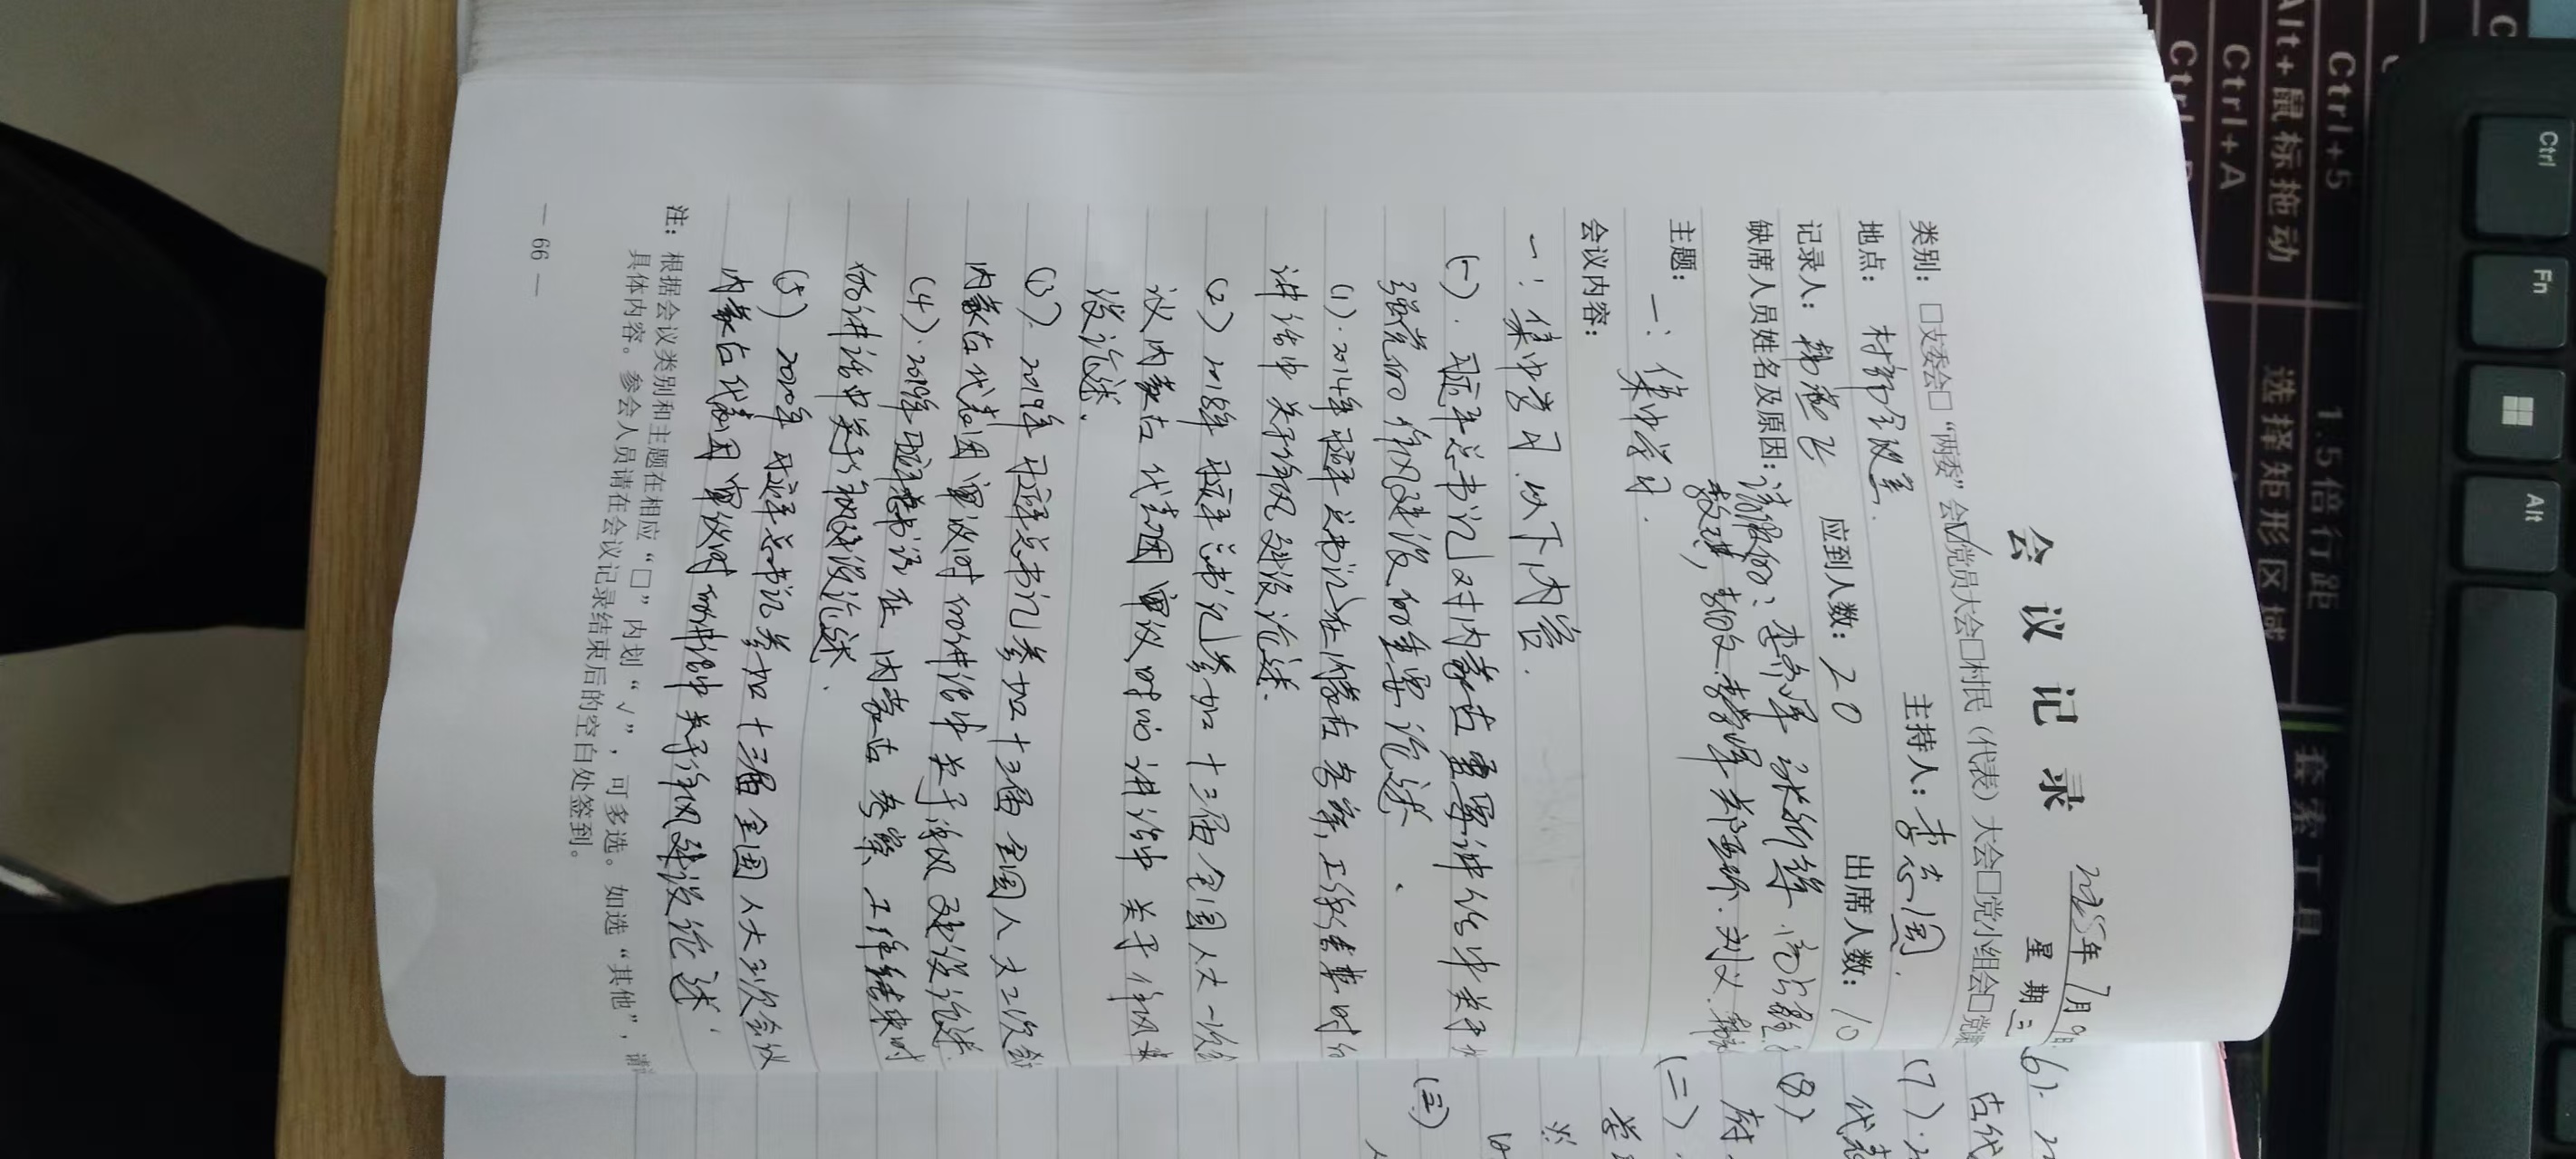 会议记录
2025年7月9日
星期三
类别：□支委会□“两委”会☑党员大会□村民（代表）大会□党小组会□党课
地点：村部会议室. 主持人：李志国.
记录人：韩艳飞 应到人数：20 出席人数：10
缺席人员姓名及原因：请假的：
主题：一：集中学习.
会议内容：
一：集中学习以下内容.
(一).习近平总书记对内蒙古重要讲话中关于
强党的作风建设的重要论述.
(1).2014年习近平总书记在内蒙古考察工作结束时的
讲话中关于作风建设论述.
(2) 2018年习近平总书记参加十三届全国人大一次
议内蒙古代表团审议时的讲话中关于作风建
设论述.
(3).2019年习近平总书记参加十三届全国人大二次会
内蒙古代表团审议时的讲话中关于作风建设论述.
(4).2019年习近平总书记在内蒙古考察工作结束时
的讲话中关于作风建设论述.
(5) 2020年习近平总书记参加十三届全国人大三次会议
内蒙古代表团审议时的讲话中关于作风建设论述.
注：根据会议类别和主题在相应“□”内划“√”，可多选。如选“其他”，请
具体内容。参会人员请在会议记录结束后的空白处签到。
— 66 —
6).
古代
(7).
代表
(8)
(二).
学
(三)
Ctrl+5
1.5倍行距
Alt+鼠标拖动
选择矩形区域
Ctrl+A
套索工具
Ctrl
Fn
Alt